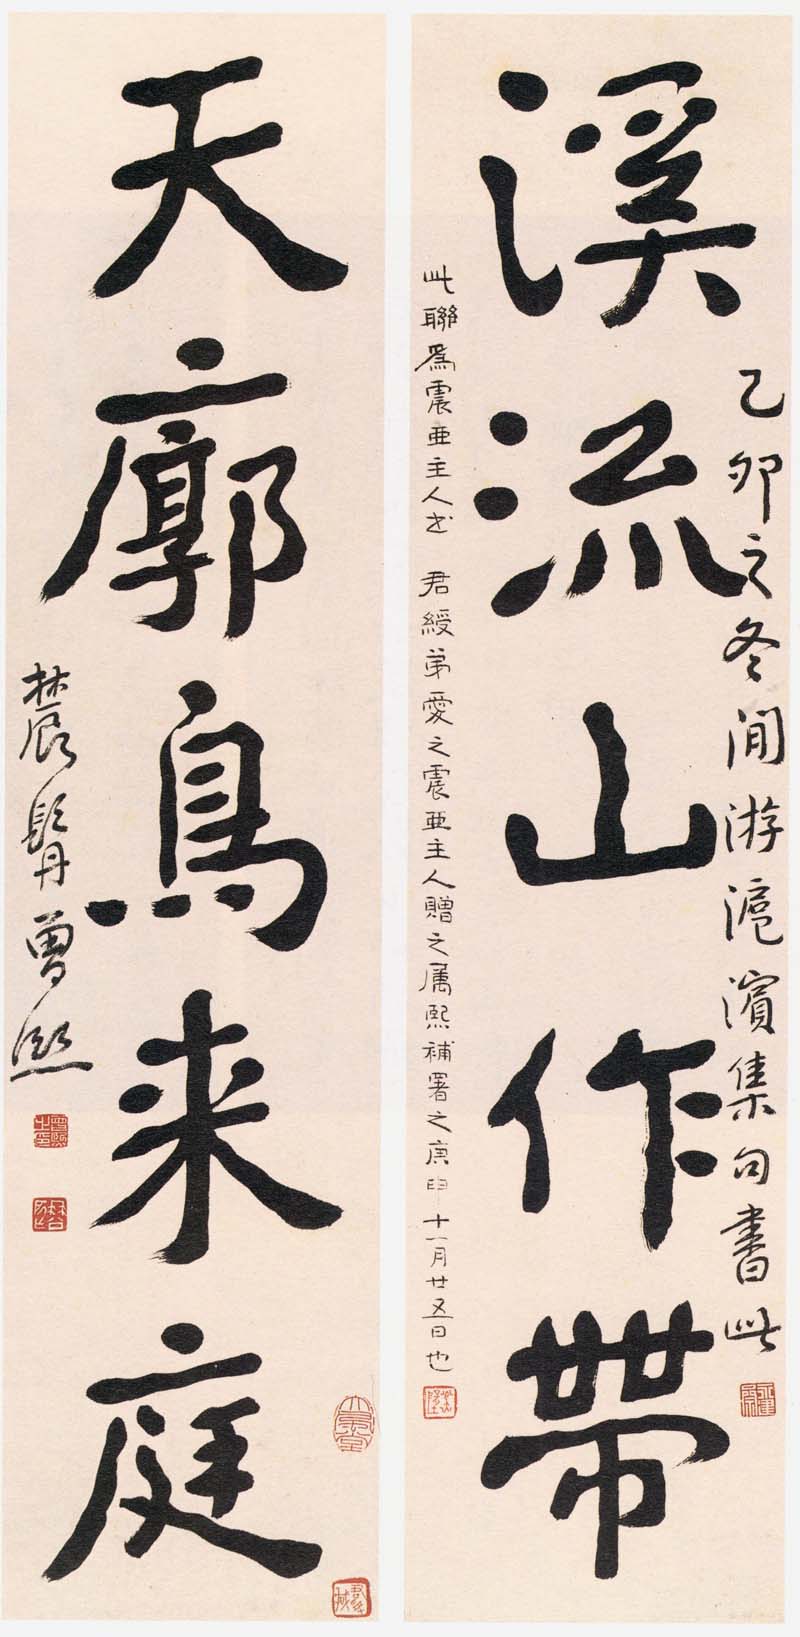 乙卯之冬閒游滬濱集句書此
溪流山作帶
此聯為震亜主人書 君綬弟愛之震亜主人贈之属熙補署之庚申十一月廿五日也
天廓鳥来庭
農髯曾熙